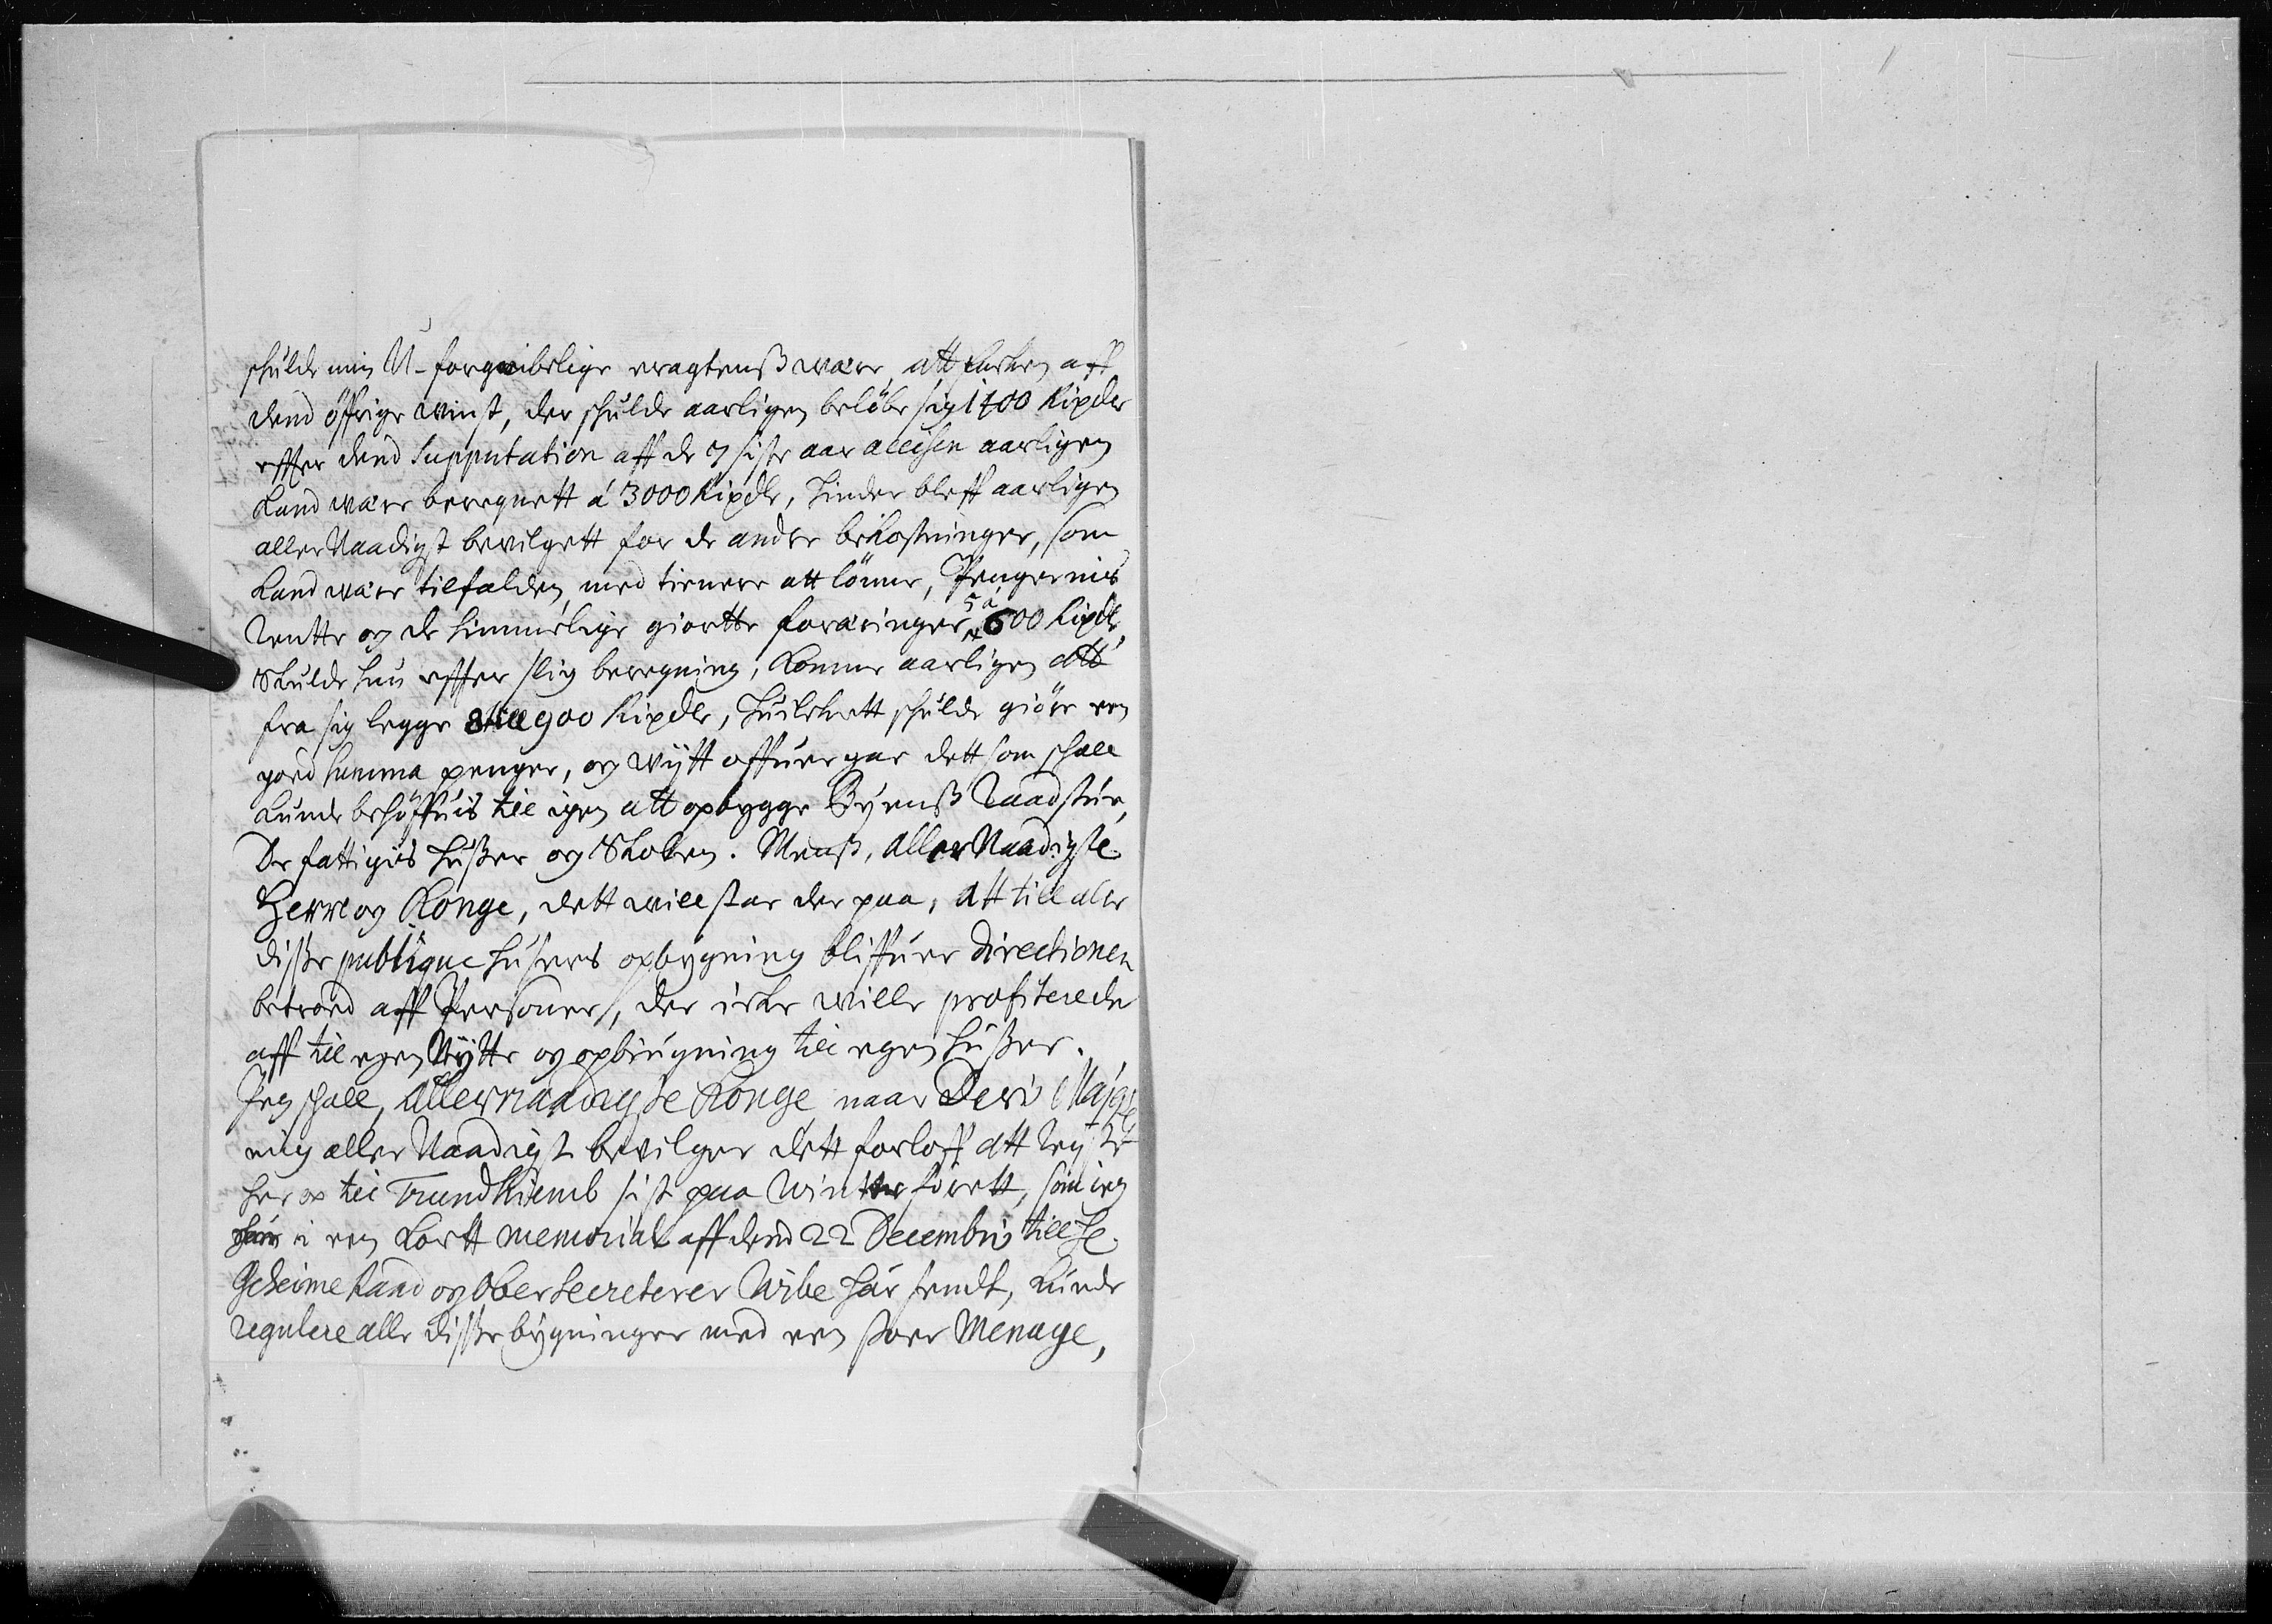 schulde min U-forgribelige eragtenß være, att af
dend öffrige winst, der schulde aarligen belöbe sig 1400 Rixdlr
effter dend Supputation aff de 7 siste aar accisen aarligen
Kand være beregnett á 3000 Rixdlr, hinder bleff aarligen
aller Naadigst bevilgett for de andre bekostninger, som
Kand være tilfalden, med tienere att lönne, Pengernis
Rentte og de himmelige giortte foræringer, 5 á 600 Rixdlr
Skulde hun effter slig beregning, Konne aarligen att
fra sig legge 8 till 900 Rixdlr, huilckett schulde giöre een
goed summa penger, og wijtt offuergar dett som schall
Kunde behöffuis till igen att opbygge Byenß Raadstue,
De fattigis Hußer og Skolen. Menß, Aller Naadigste
Herre og Konge, dett will star der paa, att till alle
diße publique Husers opbygning bliffuer Directionen
betroed aff Personer, der icke wille profitere der
aff till egen Nytte og opbiugning till egen Hußer.
Jeg schall, Allernaadigste Konge naar Deris Majst
mig aller Naadigst bevilger dett forloff att reyse
her op till Trundhiemb sist paa Winter föerett, som ieg
har i een Kortt memorial aff dend 22 Decembris till He.
Geheime Raad og Ober Secreterer Wibe har sendt, Kunde
regulere alle diße bygninger med een stoer Menage,